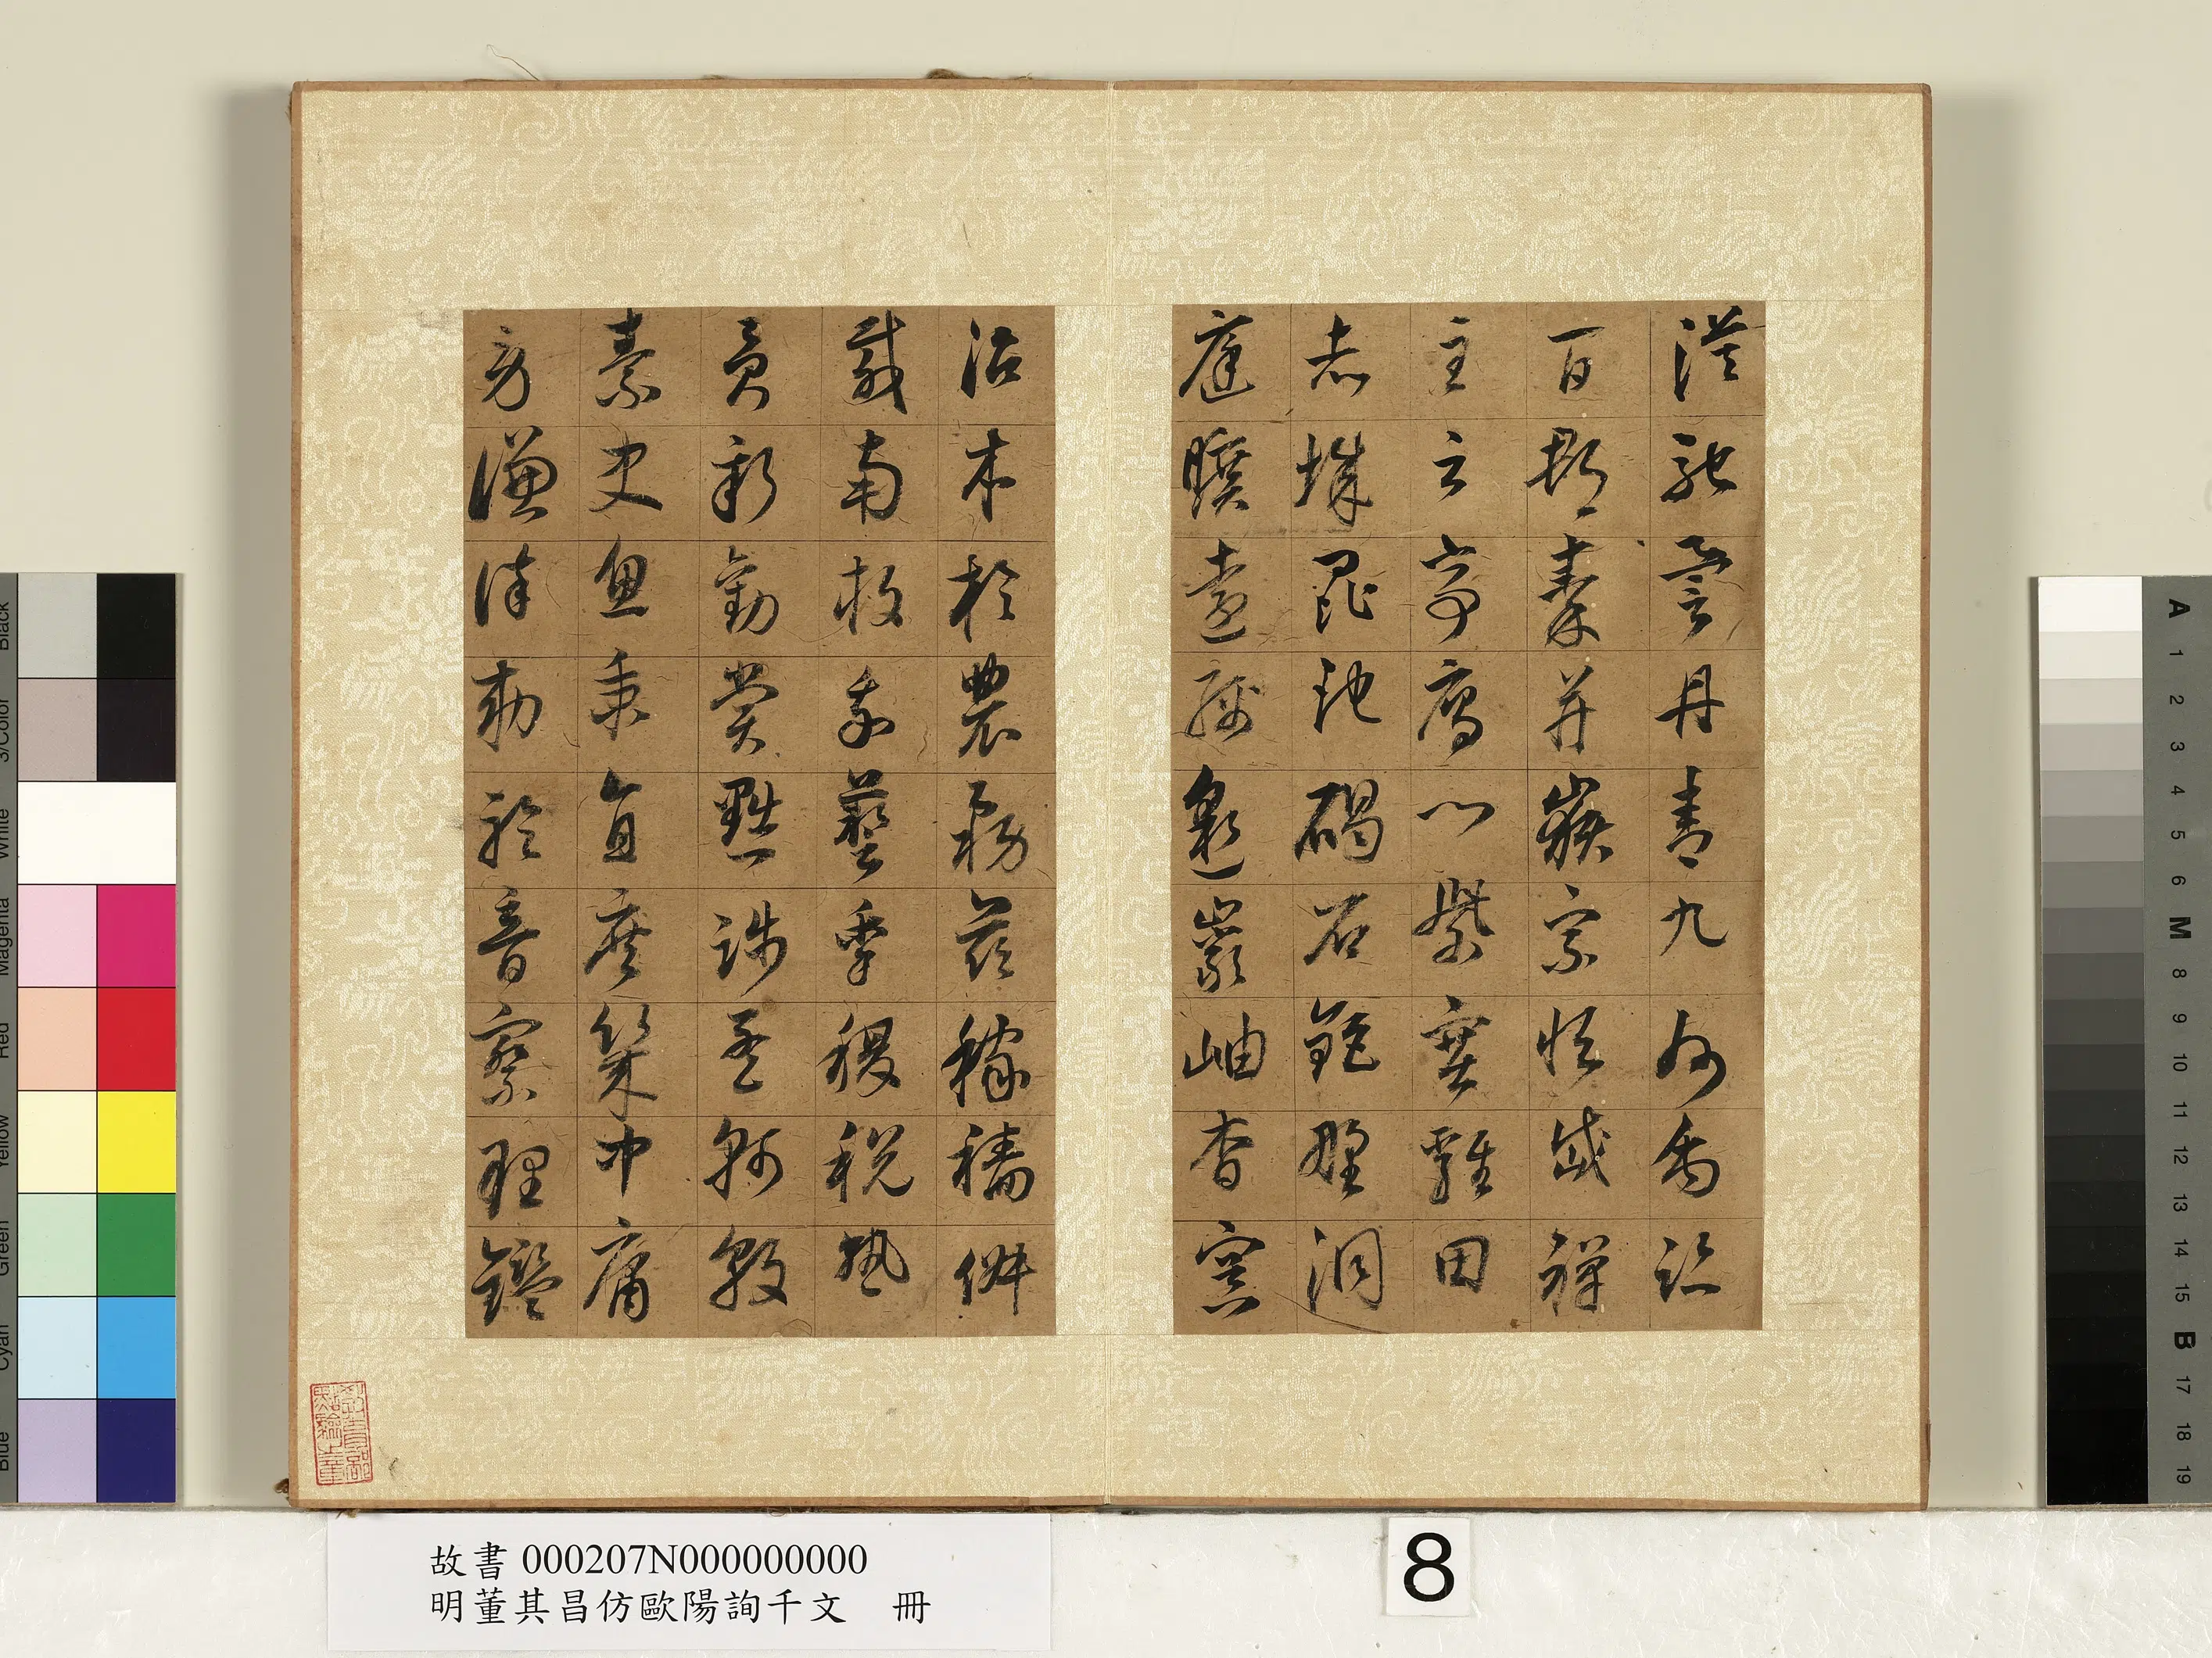 漠馳譽丹青九州禹跡
百郡秦并嶽宗恒岱禪
主云亭雁門紫塞雞田
赤城昆池碣石鉅野洞
庭曠遠綿邈巖岫杳冥
治本於農務茲稼穡俶
載南畝我藝黍稷稅熟
貢新勸賞黜陟孟軻敦
素史魚秉直庶幾中庸
勞謙謹勑聆音察理鑑
教育部點驗之章
故書 000207N000000000
明董其昌仿歐陽詢千文 冊
8
Blue Cyan Green Yellow Red Magenta White 3/Color Black
A 1 2 3 4 5 6 M 8 9 10 11 12 13 14 15 B 17 18 19